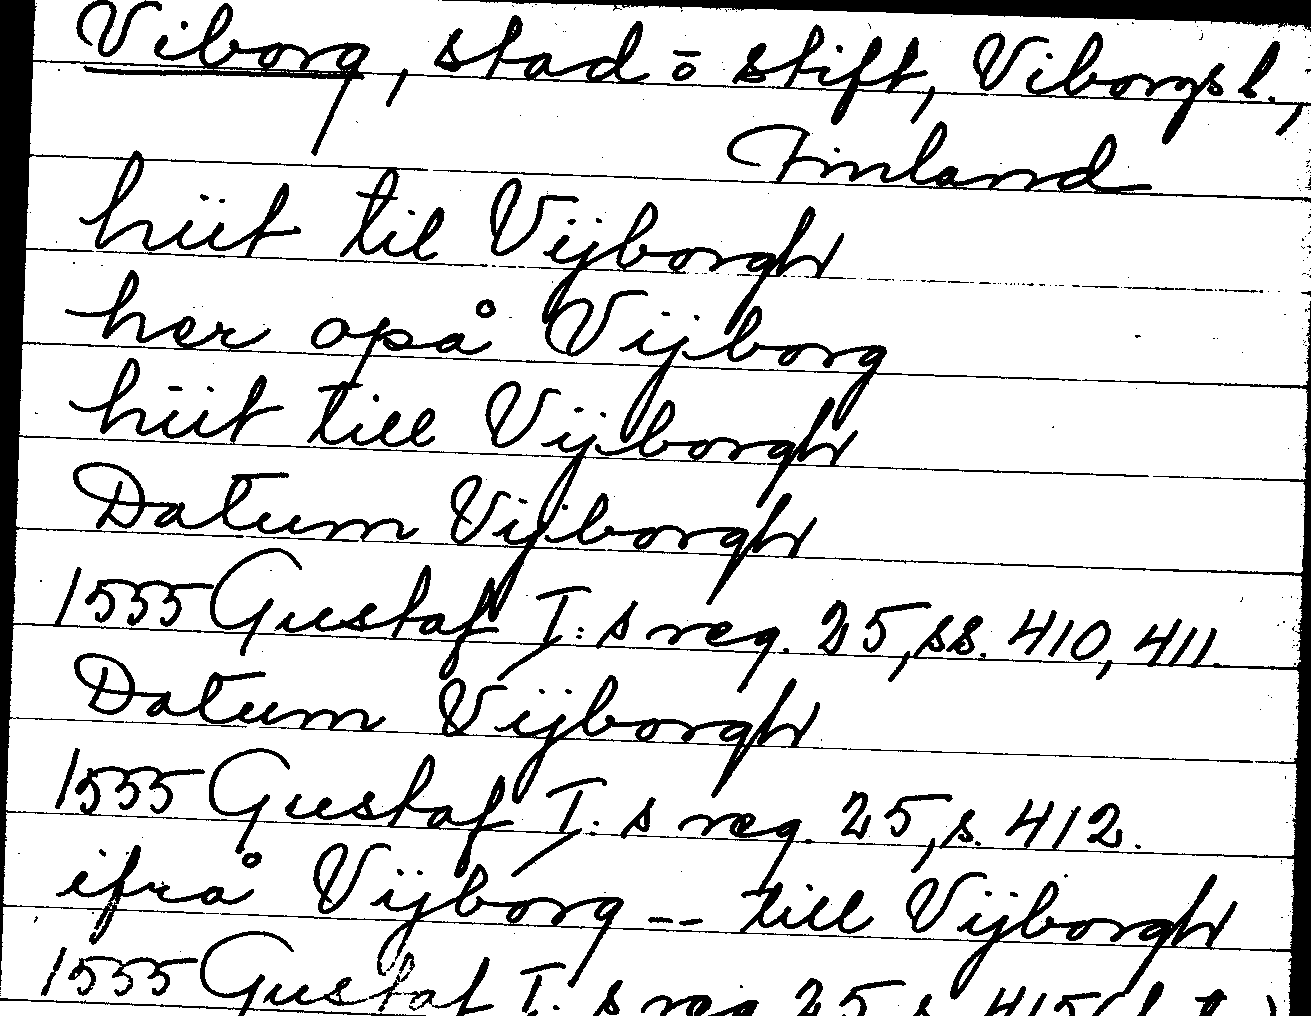 Viborg, stad o stift, Viborgs l.,
Finland
hiit til Vijborgh
her opå Vijborg
hiit till Vijborgh
Datum Vijborgh
1555 Gustaf I:s reg. 25, ss. 410, 411.
Datum Vijborgh
1555 Gustaf I:s reg. 25, s. 412.
ifrå Vijborg -- till Vijborgh
1555 Gustaf I:s reg 25 s. 415